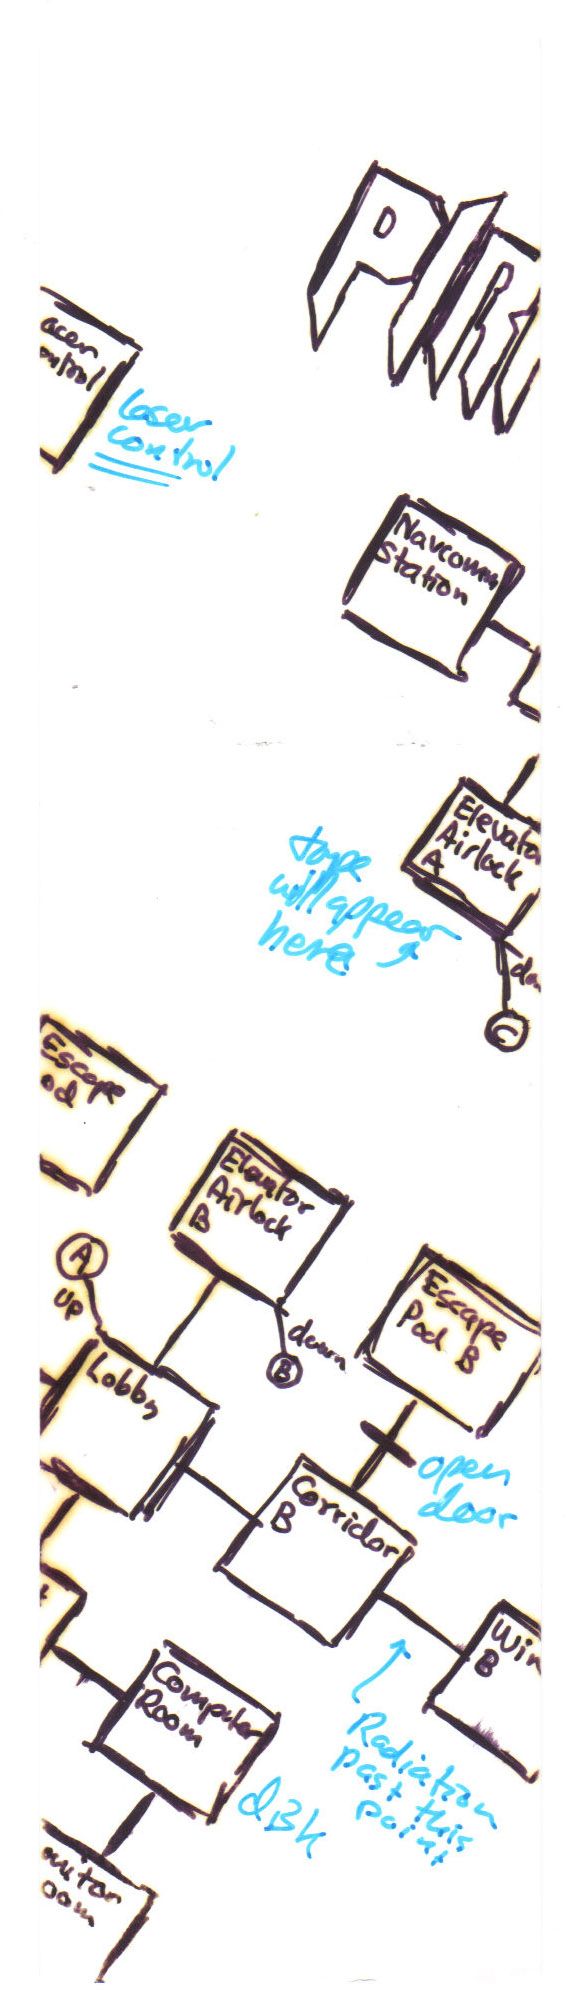 PIR
acer
ontrol
Laser
control
Navcomm
Station
Elevato
Airlock
A
tape
will appear
here
do
C
Escape
od
Elevator
Airlock
B
A
up
down
B
Escape
Pod B
Lobby
open
door
Corridor
B
Win
B
Computer
Room
Radiation
past this
point
oom